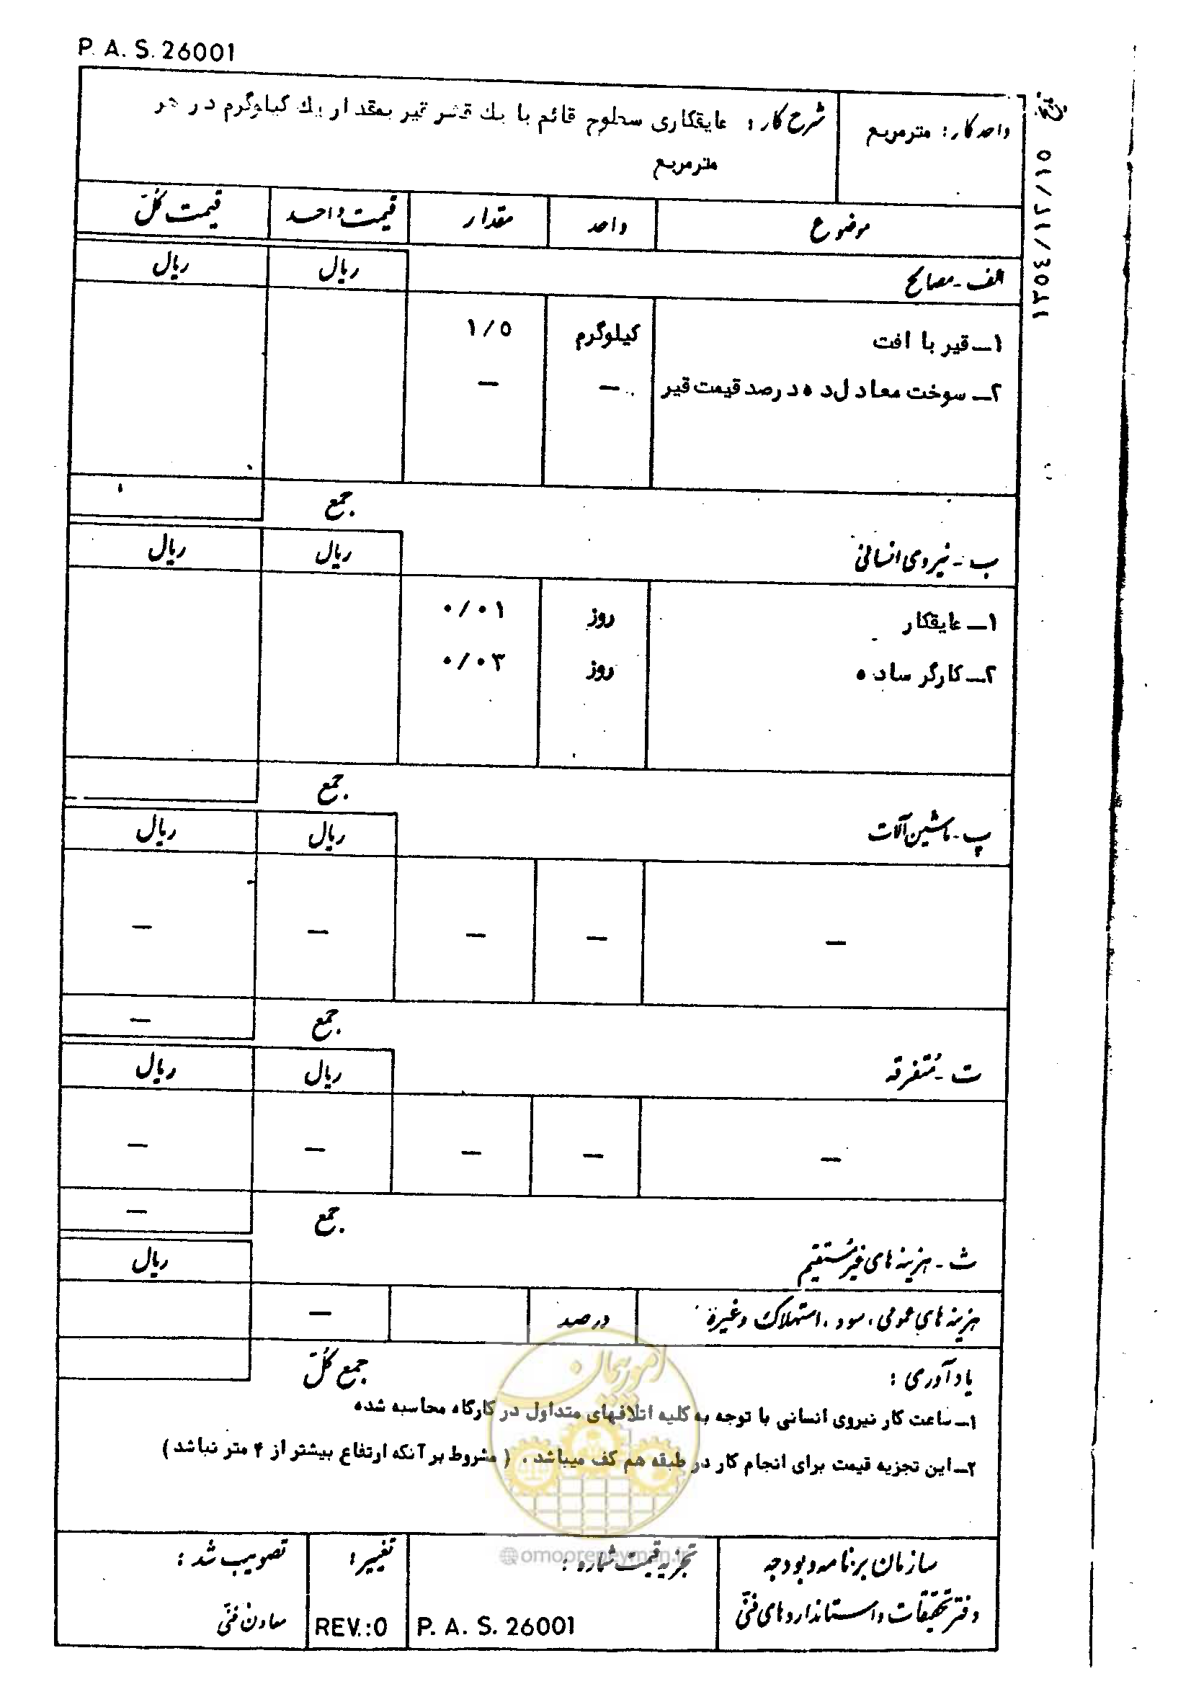 P. A. S. 26001
واحد کار: مترمربع
شرح کار: عایقکاری سطوح قائم با یك قشر قیر بمقدار یك کیلوگرم در هر
مترمربع
تاریخ ۱۳۵۴/۱۲/۱۵
موضوع واحد مقدار قیمت واحد قیمت کلّ
الف - مصالح ریال ریال
۱ــ قیر با افت کیلوگرم ۱/۵
۲ــ سوخت معادل ده درصد قیمت قیر — —
جمع
ب - نیروی انسانی ریال ریال
۱ــ عایقکار روز ۰/۰۱
۲ــ کارگر ساده روز ۰/۰۳
جمع
پ - ماشین آلات ریال ریال
— — — — —
جمع —
ت - مُتفرقه ریال ریال
— — — — —
جمع —
ث - هزینه های غیرمُستقیم ریال
هزینه های عمومی، سود، استهلاک وغیره درصد —
جمع کُلّ
یادآوری :
۱ــ ساعت کار نیروی انسانی با توجه به کلیه اتلافهای متداول در کارگاه محاسبه شده
۲ــ این تجزیه قیمت برای انجام کار در طبقه هم کف میباشد . ( مشروط بر آنکه ارتفاع بیشتر از ۴ متر نباشد )
امور پیمان
@omoorepeyman.ir
سازمان برنامه و بودجه
دفتر تحقیقات و استانداردهای فنّی
تجزیه قیمت شماره :
P. A. S. 26001
تغییر :
REV.:0
تصویب شد :
معاون فنّی